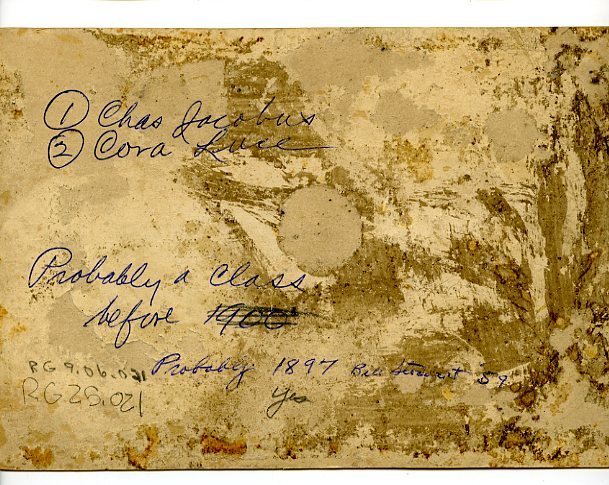 ① Chas Jacobus
② Cora Luce
Probably a class
before 1900
Probably 1897 Bill Stewart 59
RG 9.06.021
RG 28.021
Yes